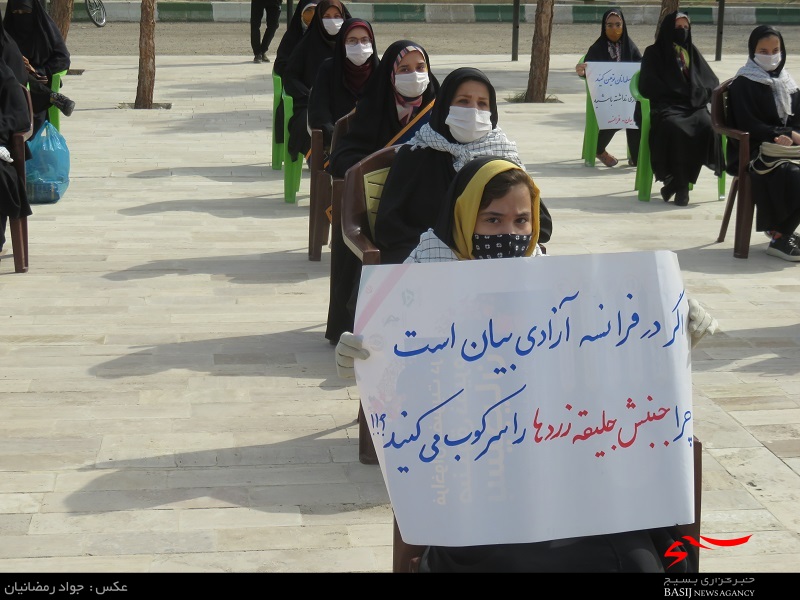 اگر در فرانسه آزادی بیان است
چرا جنبش جلیقه زردها را سرکوب می کنید؟!!
عکس : جواد رمضانیان
خبرگزاری بسیج
BASIJ NEWS AGANCY